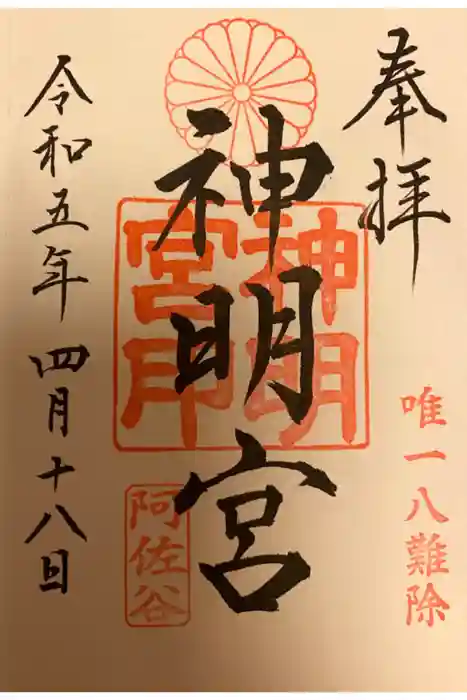 奉拝
唯一八難除
神明宮
神明宮印
阿佐谷
令和五年四月十八日